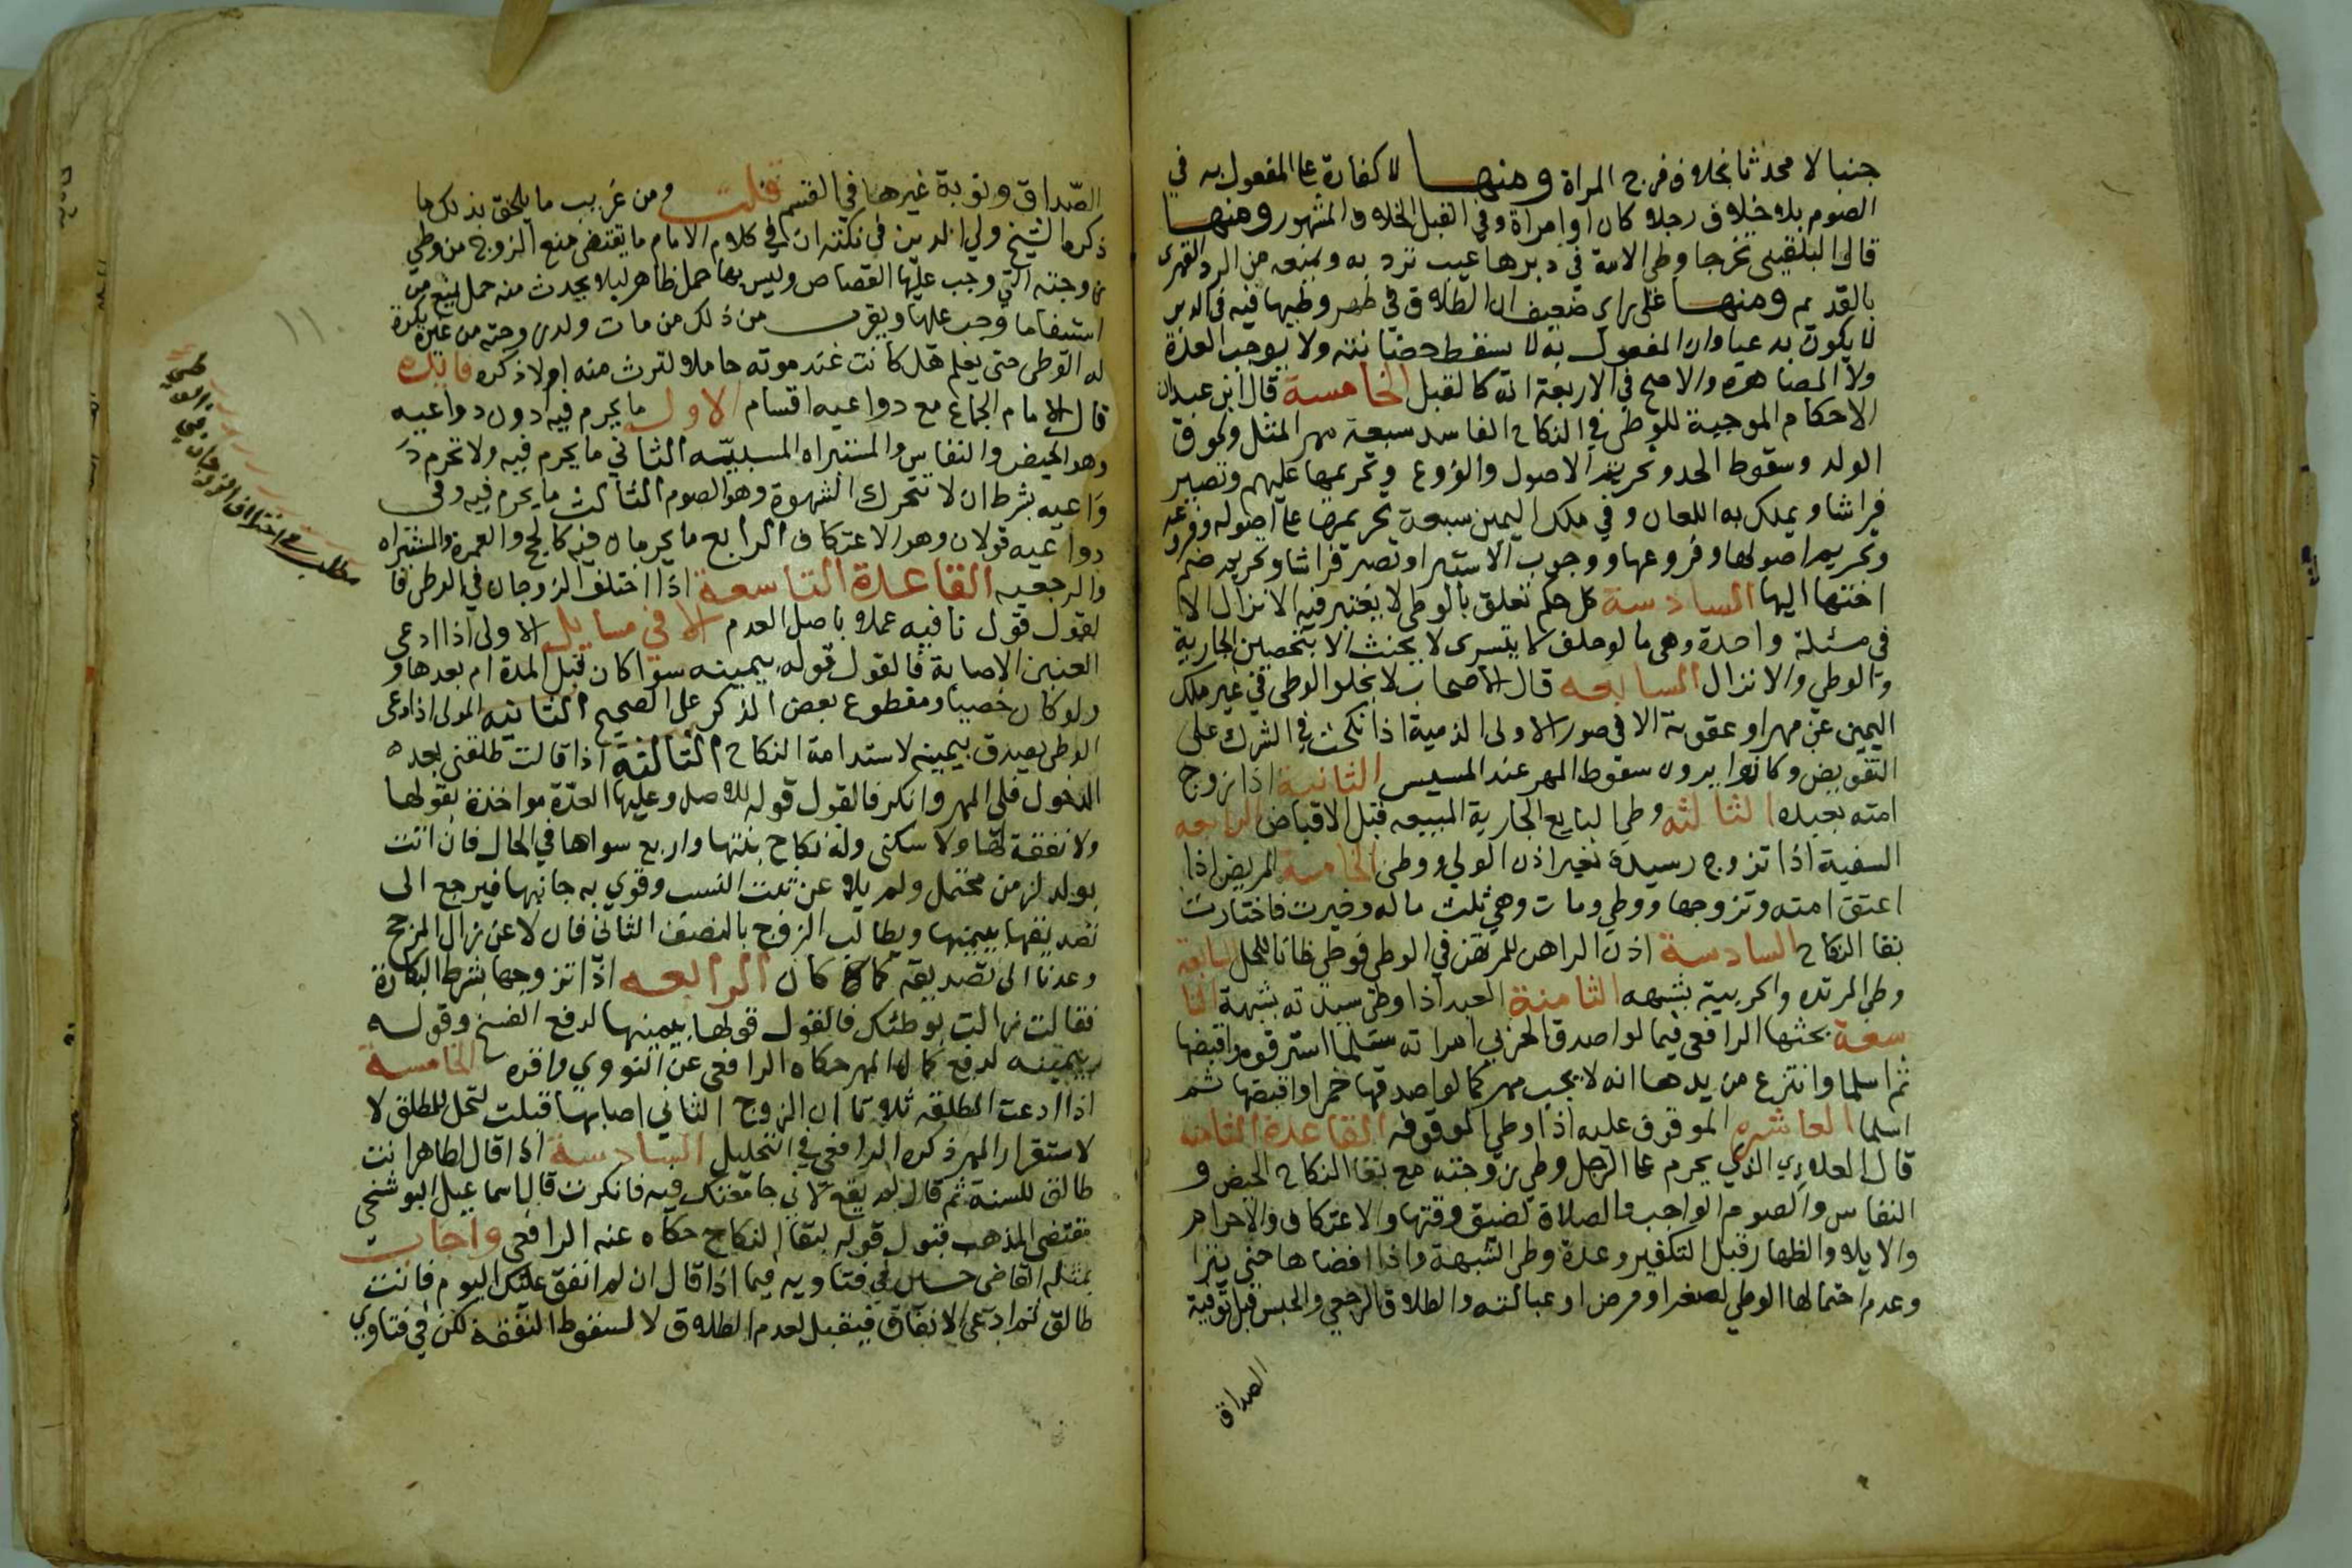 جنبا لا محدثا بخلاف فرج المراة ومنها لا كفارة على المفعول به في
الصوم بلا خلاف رجلا كان او امراة وفي القبل الخلاف المشهور ومنها
قال البلقيني تخرجا وطى الامة في دبرها عيب ترد به ويمنعه من الرد القهرى
بالقديم ومنها على راي ضعيف ان الطلاق في طهر وطيها فيه في الدبر
لا يكون بدعيا وان المفعول به لا يسقط حضانته ولا يوجب العدة
ولا المصاهرة والاصح في الاربعة انه كالقبل الخامسة قال ابن عبدان
الاحكام الموجبة للوطى في النكاح الفاسد سبعة مهر المثل ولحوق
الولد وسقوط الحد وتحريم الاصول والفروع وتحريمها عليهم وتصير
فراشا ويملك به اللعان وفي ملك اليمين سبعة تحريمها على اصوله وفروعه
وتحريم اصولها وفروعها ووجوب الاستبرا وتصير فراشا وتحريم ضم
اختها اليها السادسة كل حكم تعلق بالوطى لا يعتبر فيه الانزال الا
في مسئلة واحدة وهى ما لو حلف لا يتسرى لا يحنث الا بتحصين الجارية
والوطي والانزال السابعه قال الاصحاب لا يخلو الوطى في غير ملك
اليمين عن مهر او عقوبة الا في صور الاولى الذمية اذا نكحت في الشرك على
التفويض وكانوا يرون سقوط المهر عند المسيس الثانية اذا زوج
امته بعبده الثالثه وطى البايع الجارية المبيعه قبل الاقباض الرابعه
السفية اذا تزوج رسيدة بغير اذن الولي ووطى الخامسة المريض اذا
اعتق امته وتزوجها ووطي ومات وهي ثلث ماله وخيرت فاختارت
بقا النكاح السادسة اذن الراهن للمرتهن في الوطى فوطى ظانا للحل السابعة
وطى المرتده والحربية بشبهه الثامنة العبد اذا وطى سيدته بشبهة التا
سعة بحثها الرافعى فيما لو اصدق الحربي امراته مسلما استرقوه واقبضها
ثم اسلما وانتزع من يدها انه لا يجب مهر كما لو اصدقها خمرا واقبضها ثم
اسلما العاشره الموقوف عليه اذا وطى الموقوفه القاعدة الثامنه
قال العلاءي الذي يحرم على الرجل وطى زوجته مع بقا النكاح الحيض و
النفاس والصوم الواجب والصلاة لضيق وقتها والاعتكاف والاحرام
والايلاء والظهار قبل التكفير وعدة وطى الشبهة واذا افضاها حتى تبرا
وعدم احتمالها الوطي لصغر او مرض او عبالته والطلاق الرجعي والحبس قبل توفية
الصداق
الصداق ونوبة غيرها في القسم قلت ومن غريب ما يلحق بذلك ما
ذكره الشيخ ولي الدين في نكته ان في كلام الامام ما يقتضى منع الزوج من وطي
زوجته التي وجب عليها القصاص وليس بها حمل ظاهر ليلا يحدث منه حمل يمنع من
استيفا ما وجب عليها ويقرب من ذلك من مات ولد زوجته من غيره يكره
له الوطى حتى يعلم هل كانت عند موته حاملا لترث منه او لا ذكره فائده
قال الامام الجماع مع دواعيه اقسام الاول ما يحرم فيه دون دواعيه
وهو الحيض والنفاس والمستبراه المسبيّه الثاني ما يحرم فيه ولا تحرم د
واعيه بشرط ان لا تتحرك الشهوة وهو الصوم الثالث ما يحرم فيه وفى
دواعيه قولان وهو الاعتكاف الرابع ما يحرمان فيه كالحج والعمرة والمستبراه
والرجعيه القاعدة التاسعة اذا اختلف الزوجان في الوطى فا
لقول قول نافيه عملا باصل العدم الا في مسايل الاولى اذا ادعى
العنين الاصابة فالقول قوله بيمينه سوا كان قبل المدة ام بعدها و
ولو كان خصيا ومقطوع بعض الذكر على الصحيح الثانيه المولى اذا ادعى
الوطى يصدق بيمينه لاستدامة النكاح الثالثة اذا قالت طلقنى بعده
الدخول فلى المهر وانكر فالقول قوله للاصل وعليها العدّة مواخذة بقولها
ولا نفقة لها ولا سكنى وله نكاح بنتها واربع سواها في الحال فان اتت
بولد لزمن محتمل ولم يلاعن ثبت النسب وقوي به جانبها فيرجع الى
تصديقها بيمينها ويطالب الزوج بالنصف الثانى فان لاعن زال المرجح
وعدنا الى تصديقه كما كان الرابعه اذا تزوجها بشرط البكارة
فقالت زالت بوطئك فالقول قولها بيمينها لدفع الفسخ وقوله
بيمينه لدفع كمال المهر حكاه الرافعى عن النووي واقره الخامسة
اذا ادعت المطلقه ثلاثا ان الزوج الثاني اصابها قبلت لتحل للمطلق لا
لاستقرار المهر ذكره الرافعي في التحليل السادسة اذا قال لطاهر انت
طالق للسنة ثم قال لم يقع لاني جامعتك فيه فانكرت قال اسماعيل البوشنجي
مقتضى المذهب قبول قوله لبقا النكاح حكاه عنه الرافعى واجاب
بمثله القاضى حسين في فتاويه فيما اذا قال ان لم انفق عليك اليوم فانت
طالق ثم ادعى الانفاق فيقبل لعدم الطلاق لا لسقوط النفقة لكن في فتاوي
١١٠
مطلب اختلاف الزوجان في
الوطى